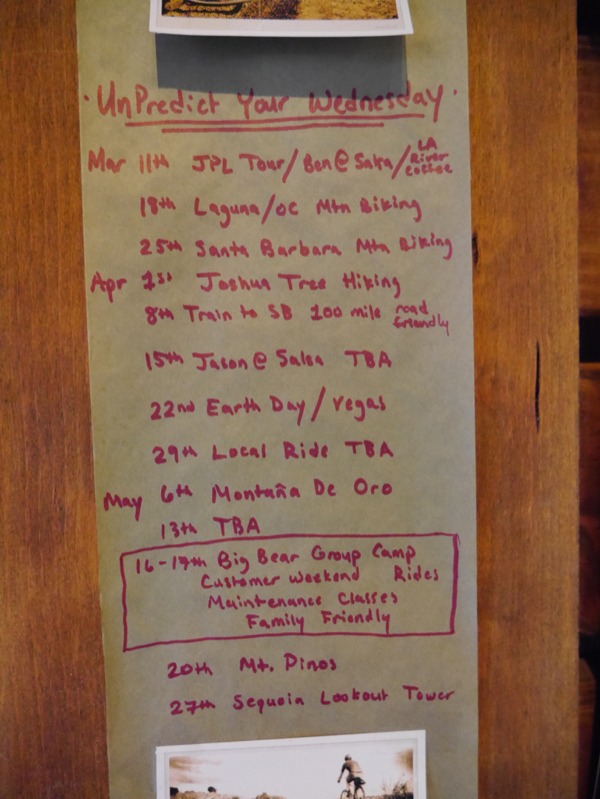 · UnPredict Your Wednesday ·
Mar 11th JPL Tour/Ben@Salsa/LA River Coffee
18th Laguna/OC Mtn Biking
25th Santa Barbara Mtn Biking
Apr 1st Joshua Tree Hiking
8th Train to SB 100 mile road friendly
15th Jason@Salsa TBA
22nd Earth Day/Vegas
29th Local Ride TBA
May 6th Montaña De Oro
13th TBA
16-17th Big Bear Group Camp
Customer Weekend Rides
Maintenance Classes
Family Friendly
20th Mt. Pinos
27th Sequoia Lookout Tower